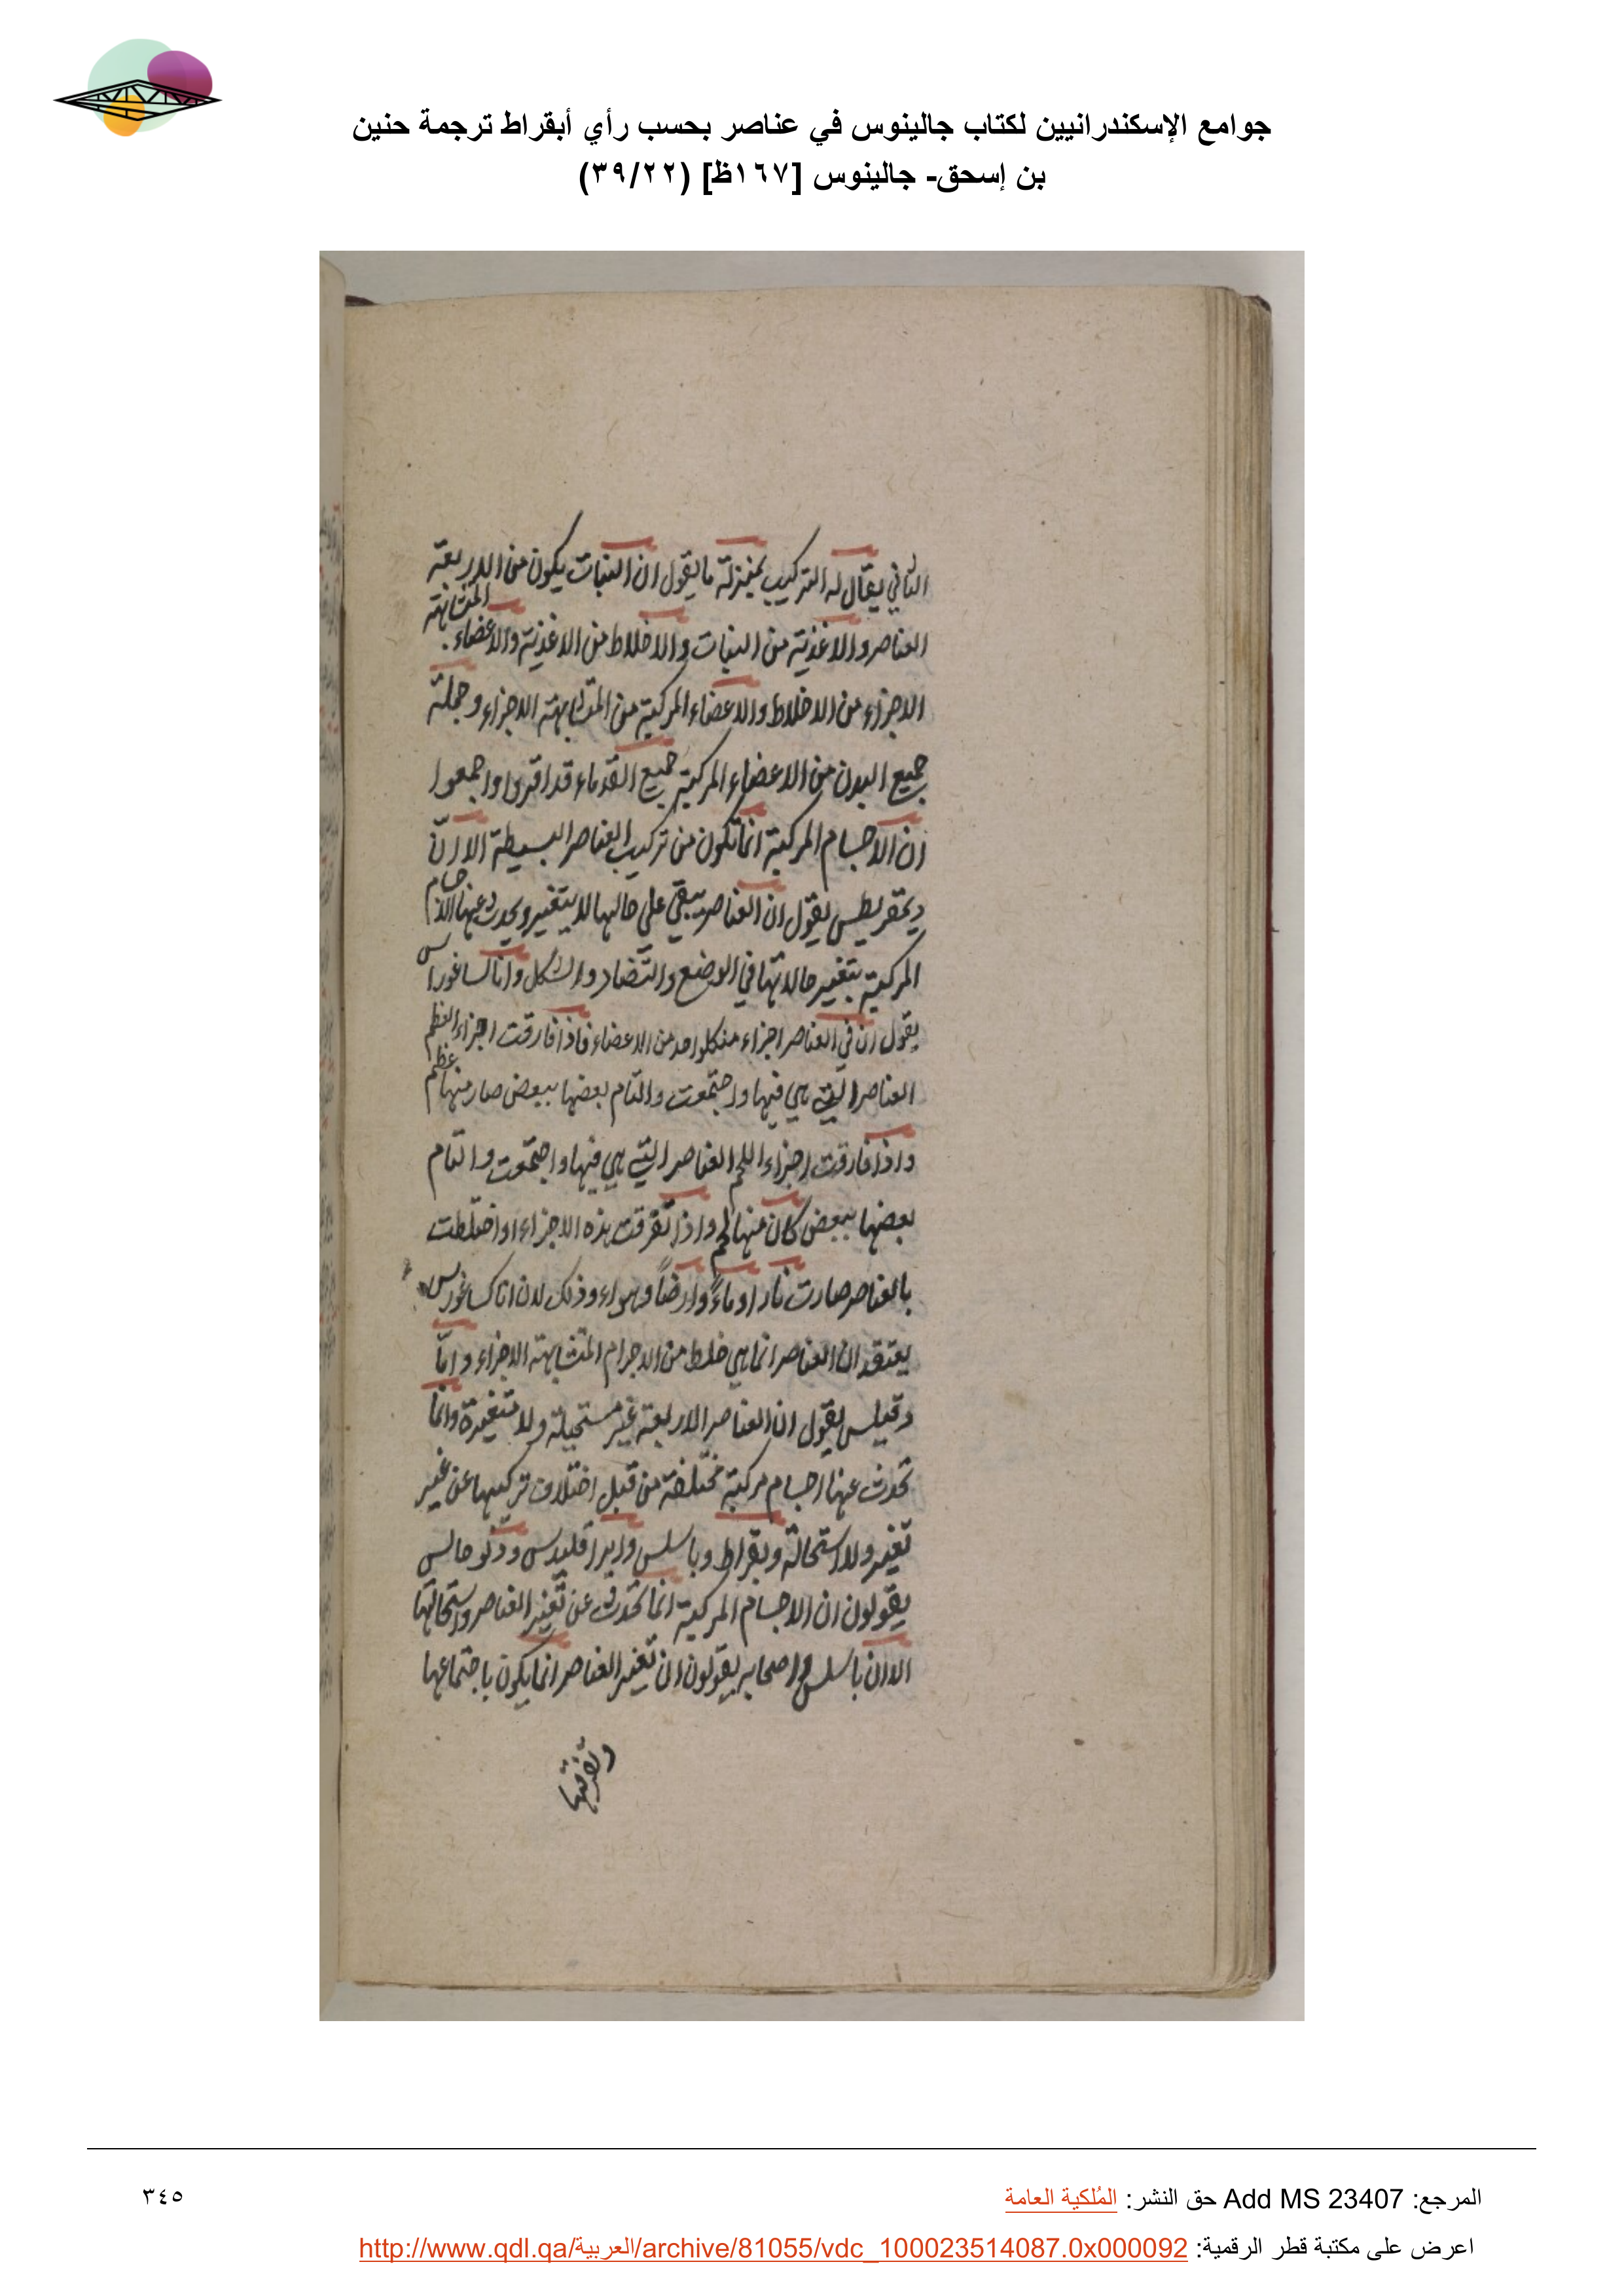 جوامع الإسكندرانيين لكتاب جالينوس في عناصر بحسب رأي أبقراط ترجمة حنين
بن إسحق- جالينوس [١٦٧ظ] (٣٩/٢٢)
الثاني يقال له التركيب بمنزلة ما يقول ان النبات يكون من الاربعة
العناصر والاغذية من النبات والاخلاط من الاغذية والاعضاء المتشابهة
الاجزاء من الاخلاط والاعضاء المركبة من المتشابهة الاجزاء وجملة
جميع البدن من الاعضاء المركبة جميع القدماء قد اقروا واجمعوا
ان الاجسام المركبة انما تكون من تركيب العناصر البسيطة الا ان
ديمقريطس يقول ان العناصر يبقي على حالها لا يتغير ويحدث عنها الاجسام
المركبة بتغير حالاتها في الوضع والتضاد والشكل وانا كساغوراس
يقول ان في العناصر اجزاء من كلواحد من الاعضاء فاذا فارقت اجزاء العظم
العناصر التي هي فيها واجتمعت والتام بعضها ببعض صار منها عظم
واذا فارقت اجزاء اللحم العناصر التي هي فيها واجتمعت والتام
بعضها ببعض كان منها لحم واذا تفرقت هذه الاجزاء واختلطت
بالعناصر صارت نارا وماءً وارضاً وهواء وذلك لان انا كساغورس
يعتقد ان العناصر انما هي خلط من الاجرام المتشابهة الاجزاء وانبا
دقيلس يقول ان العناصر الاربعة غير مستحيلة ولا متغيرة وانما
تحدث عنها اجسام مركبة مختلفة من قبل اختلاف تركيبها عن غير
تغير ولا استحالة وبقراط وباسلس وايراقليدس وذلو حالس
يقولون ان الاجسام المركبة انما تحدث عن تغير العناصر واستحالتها
الا ان باسلس واصحابه يقولون ان تغير العناصر انما يكون باجتماعها
وتفرقها
المرجع: Add MS 23407 حق النشر: المُلكية العامة
٣٤٥
اعرض على مكتبة قطر الرقمية: http://www.qdl.qa/العربية/archive/81055/vdc_100023514087.0x000092